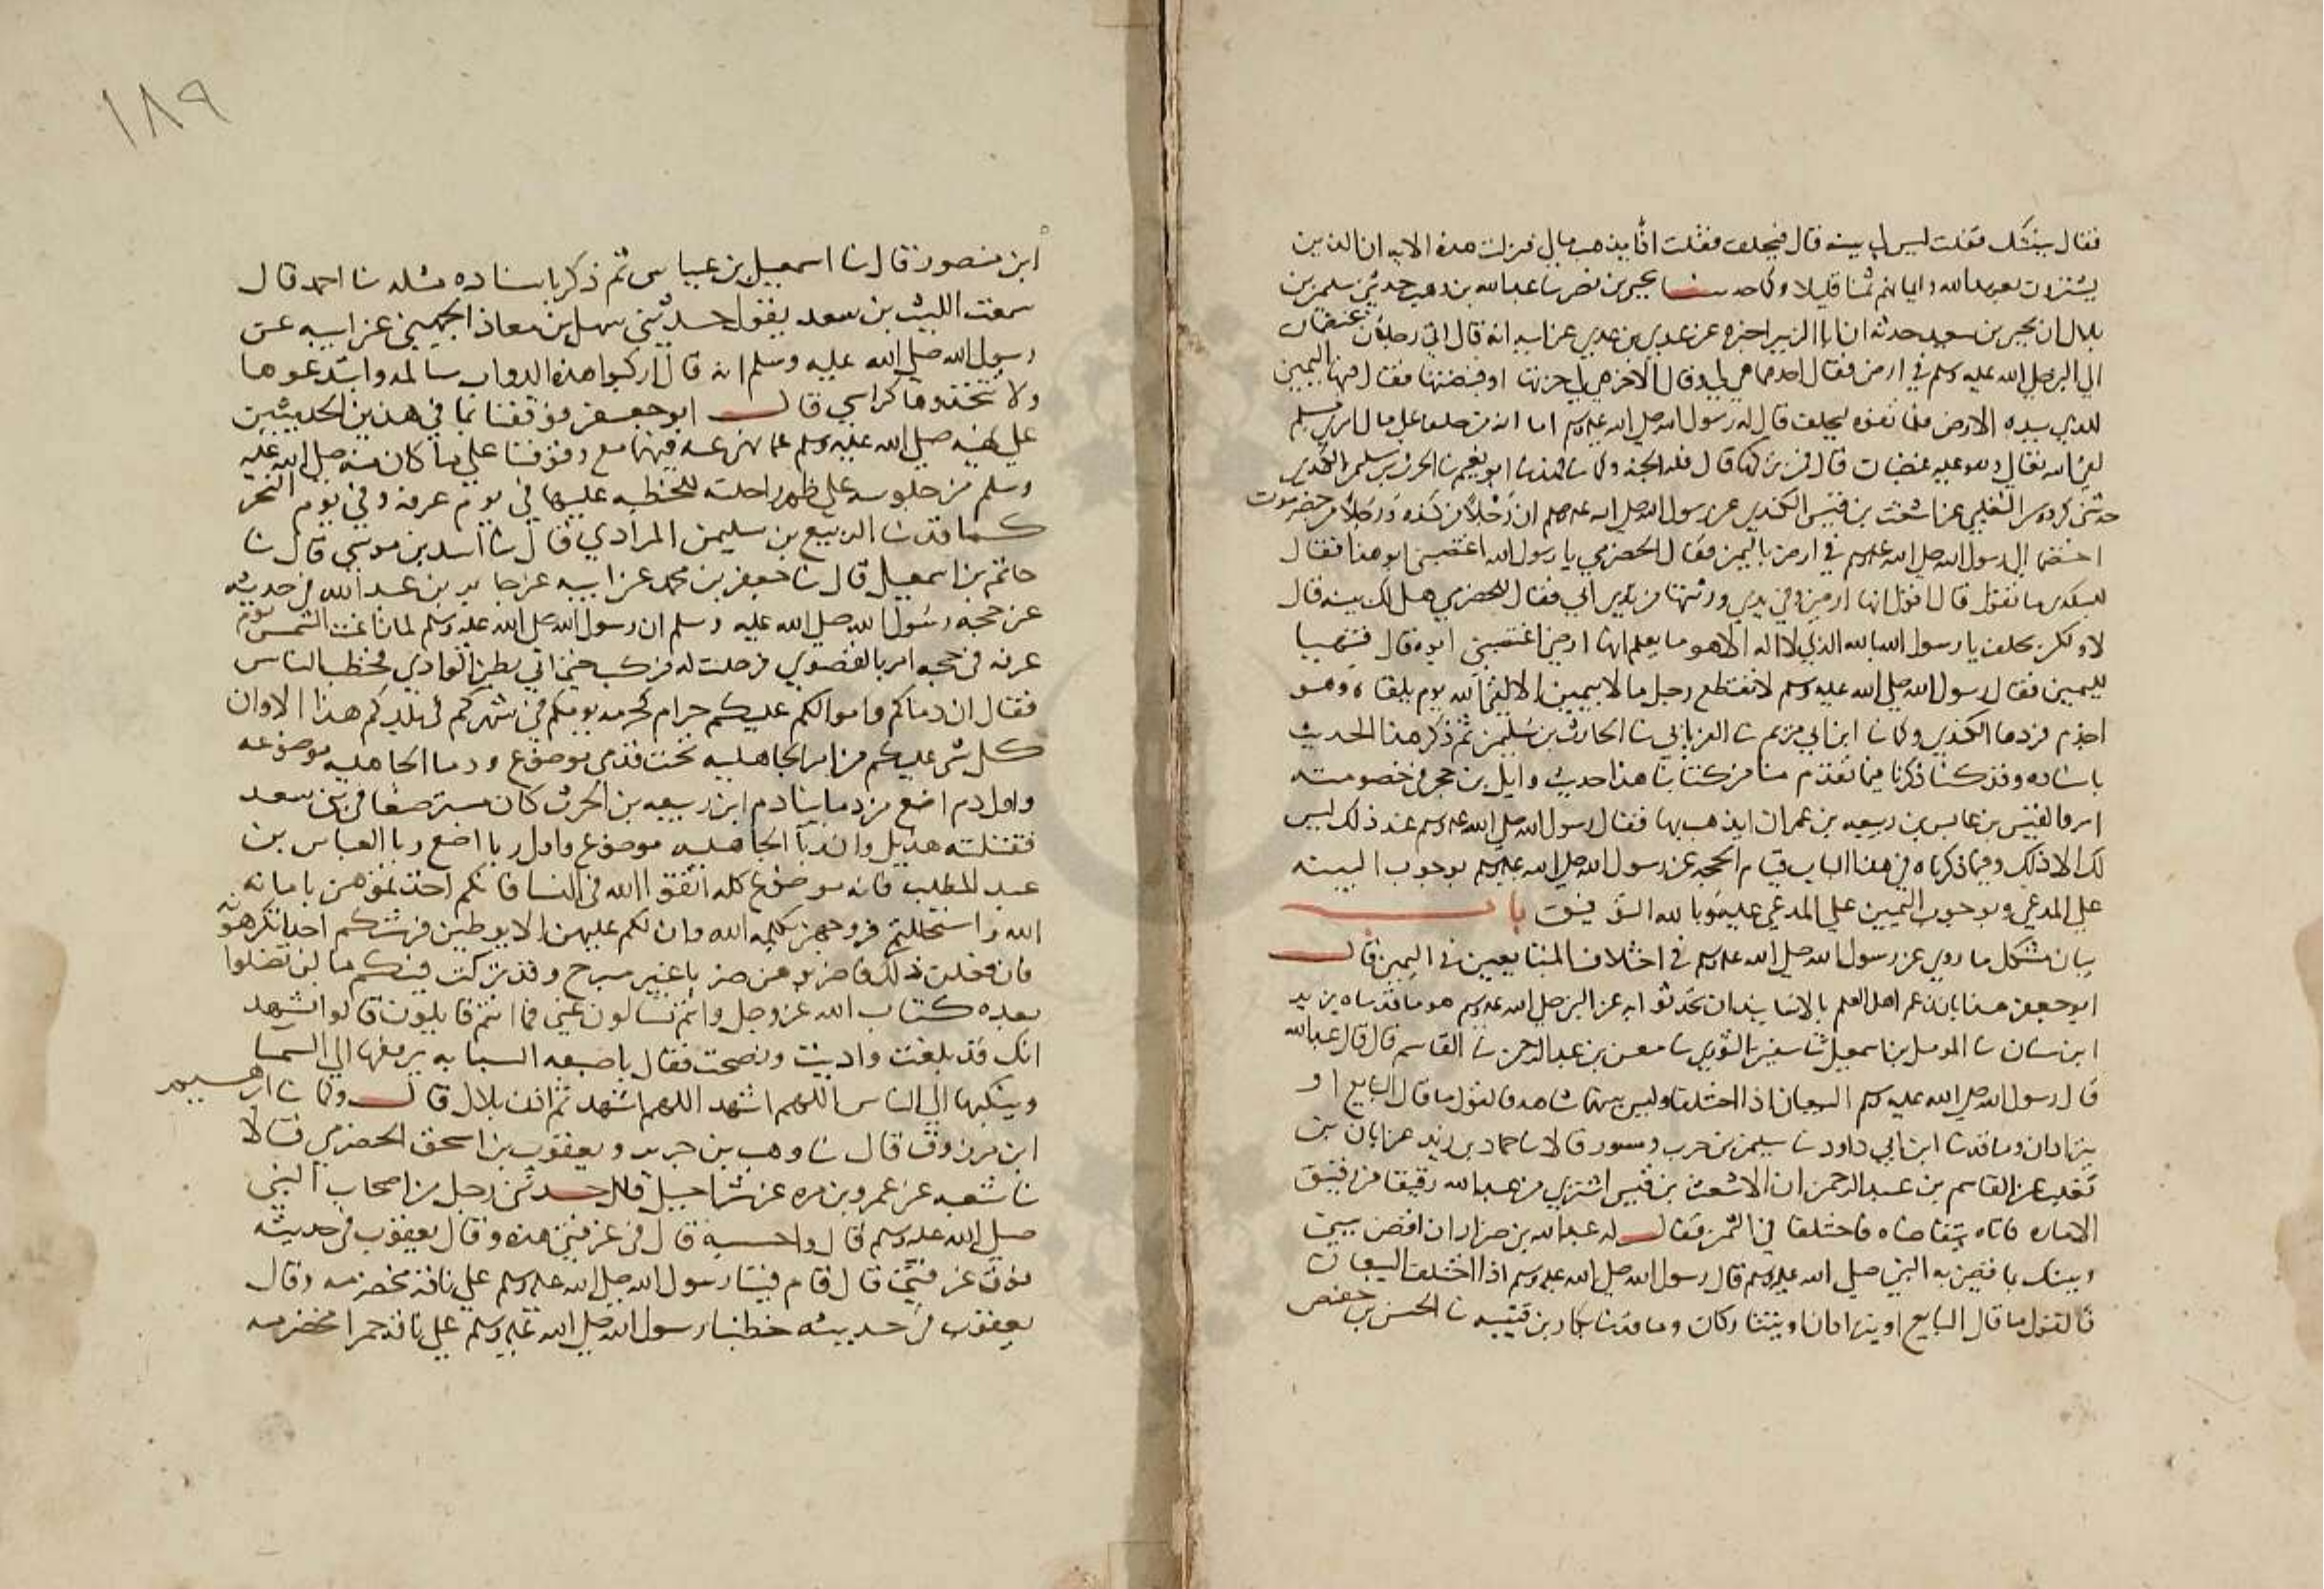 فقال بينتك فقلت ليس لي بينه قال فيحلف فقلت اذا يذهب بمالي فنزلت هذه الايه ان الذين
يشترون بعهد الله وايمانهم ثمنا قليلا وكما حدثنا بحير بن نصر نا عبد الله بن وهب حدثني سليمن بن
بلال ان يحيى بن سعيد حدثه ان ابا الزبير اخبره عن عدي بن عدي عن ابيه انه قال اتى رجلان يختصمان
الى النبي صلى الله عليه وسلم في ارض فقال احدهما هي لي وقال الاخر هي لي حزتها او قبضتها فقال فيها اليمين
للذي بيده الارض فلما تفوه ليحلف قال له رسول الله صلى الله عليه وسلم اما انه من حلف على مال امرئ مسلم
لقي الله تعالى وهو عليه غضبان قال فمن تركها قال فله الجنه وكما نا فهد نا ابو نعيم نا الحرث بن سليمن الكندي
حدثني كردوس الثعلبي عن اشعث بن قيس الكندي عن رسول الله صلى الله عليه وسلم ان رجلا من كنده ورجلا من حضرموت
اختصما الى رسول الله صلى الله عليه وسلم في ارض باليمن فقال الحضرمي يا رسول الله اغتصبني ابو هذا فقال
للكندي ما تقول قال اقول انها ارضي وفي يدي ورثتها من ابي فقال للحضرمي هل لك بينه قال
لا ولكن يحلف يا رسول الله بالله الذي لا اله الا هو ما يعلم انها ارضي اغتصبني ابوه قال فتهيا
لليمين فقال رسول الله صلى الله عليه وسلم لا يقتطع رجل مالا بيمين الا لقي الله يوم يلقاه وهو
اجذم فردها الكندي وكما نا ابن ابي مريم نا الفريابي نا الحارث بن سليمن ثم ذكر هذا الحديث
باسناده وقد كنا ذكرنا فيما تقدم منا من كتابنا هذا حديث وايل بن حجر في خصومته
امرو القيس بن عابس بن ربيعه بن عمران ايذهب بها فقال رسول الله صلى الله عليه وسلم عند ذلك ليس
لك الا ذلك وفيما ذكرناه في هذا الباب قيام الحجه عن رسول الله صلى الله عليه وسلم بوجوب البينه
على المدعي وبوجوب اليمين على المدعى عليه وبالله التوفيق باب
بيان مشكل ما روي عن رسول الله صلى الله عليه وسلم في اختلاف المتبايعين في اليمين قال
ابو جعفر هذا باب زعم اهل العلم بالاسانيد ان تحدثوا به عن النبي صلى الله عليه وسلم هو ما قد نا يزيد
ابن سنان نا المومل بن اسمعيل نا سفين الثوري نا معن بن عبد الرحمن نا القاسم قال قال عبد الله
قال رسول الله صلى الله عليه وسلم البيعان اذا اختلفا وليس بينهما شاهد فالقول ما قال البايع او
يترادان وما قد نا ابن ابي داود نا سليمن بن حرب ومسدد قالا نا حماد بن زيد عن ابان بن
تغلب عن القاسم بن عبد الرحمن ان الاشعث بن قيس اشترى من عبد الله رقيقا من رقيق
الاماره فاتاه يتقاضاه فاختلفا في الثمن فقال له عبد الله بن ضرار ان اقض بيني
وبينك بما قضى به النبي صلى الله عليه وسلم قال رسول الله صلى الله عليه وسلم اذا اختلف البيعان
فالقول ما قال البايع او يترادان او يتتاركان وما قد نا بكار بن قتيبه نا الحسن بن حفص
١٨٩
ابن منصور قال نا اسمعيل بن عياش ثم ذكر باسناده مثله نا احمد قال
سمعت الليث بن سعد يقول حدثني سهل بن معاذ الجهيني عن ابيه عن
رسول الله صلى الله عليه وسلم انه قال اركبوا هذه الدواب سالمه وابتدعوها
ولا تتخذوها كراسي قال ابو جعفر فوقفنا بما في هذين الحديثين
على نهيه صلى الله عليه وسلم عما نهى عنه فيهما مع وقوفنا على ما كان منه صلى الله عليه
وسلم من جلوسه على ظهر راحلته للخطبه عليها في يوم عرفه وفي يوم النحر
كما قد نا الربيع بن سليمن المرادي قال نا اسد بن موسى قال نا
حاتم بن اسمعيل قال نا جعفر بن محمد عن ابيه عن جابر بن عبد الله في حديثه
عن حجه رسول الله صلى الله عليه وسلم ان رسول الله صلى الله عليه وسلم لما زاغت الشمس يوم
عرفه في حجه امر بالقصوي فرحلت له فركب حتى اتى بطن الوادي فخطب الناس
فقال ان دماكم واموالكم عليكم حرام كحرمه يومكم في شهركم في بلدكم هذا الا وان
كل شي عليكم من امر الجاهليه تحت قدمي موضوع ودما الجاهليه موضوعه
واول دم اضع من دماينا دم ابن ربيعه بن الحرث كان مسترضعا في بني سعد
فقتلته هذيل وان ربا الجاهليه موضوع واول ربا اضع ربا العباس بن
عبد المطلب فانه موضوع كله اتقوا الله في النسا فانكم اخذتموهن بامانه
الله واستحللتم فروجهن بكلمه الله وان لكم عليهن الا يوطين فرشكم احدا تكرهونه
فان فعلن ذلك فاضربوهن ضربا غير مبرح وقد تركت فيكم ما لن تضلوا
بعده كتاب الله عز وجل وانتم تسالون عني فما انتم قايلون قالوا نشهد
انك قد بلغت واديت ونصحت فقال باصبعه السبابه يرفعها الى السما
وينكبها الى الناس اللهم اشهد اللهم اشهد ثم اذن بلال قال وكما نا ابرهيم
ابن مرزوق قال نا وهب بن جرير ويعقوب بن اسحق الحضرمي قالا
نا شعبه عن عمرو بن مره عن شراحبيل قال حدثني رجل من اصحاب النبي
صلى الله عليه وسلم قال واحسبه قال في غرفتي هذه وقال يعقوب في حديثه
فوق غرفتي قال قام فينا رسول الله صلى الله عليه وسلم على ناقه مخضرمه وقال
يعقوب في حديثه خطبنا رسول الله صلى الله عليه وسلم على ناقه حمرا مخضرمه